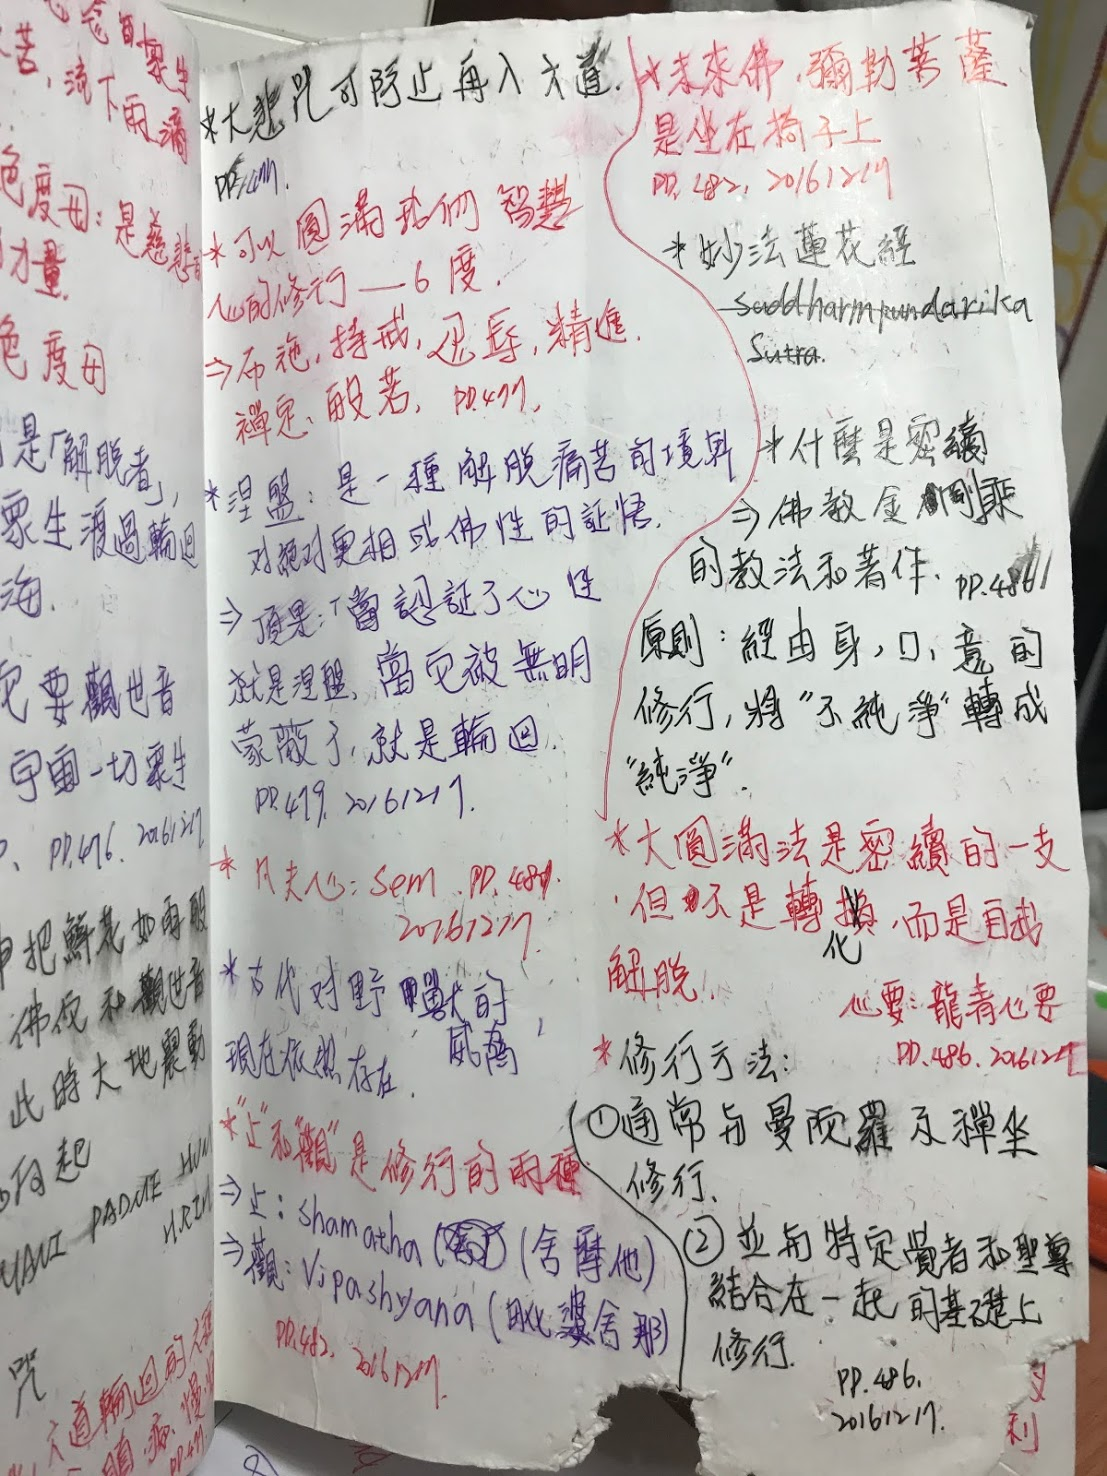 念自眾生
苦,流下兩滴
色度母:是慈悲
力量.
色度母
是「解脫者」,
眾生渡過輪迴
海.
要觀世音
宇宙一切眾生
PP.476. 20161217
把鮮花如雨般
佛陀和觀世音
此時大地震動
起
MANI PADME HUM
HRIH
咒
六道輪迴的
PP.477
*大悲咒可防止再入六道.
PP.477.
*可以圓滿我們智慧
心的修行—6度.
⇒布施,持戒,忍辱,精進.
禪定、般若. PP.477.
*涅盤:是一種解脫痛苦的境界
对絕对實相或佛性的証悟.
⇒頂果:「當認証了心性
就是涅盤,當它被無明
蒙蔽了,就是輪迴.
PP.479. 20161217.
*凡夫心:sem. PP.481.
20161217.
*古代对野蠻人的
威脅,
現在依然存在.
*"止"和"觀"是修行的兩種
⇒止:shamatha (舍摩他)
⇒觀:Vipashyana (毗婆舍那)
PP.482. 20161217.
*未來佛.彌勒菩薩
是坐在椅子上
PP.482. 20161217
*妙法蓮花經
Suddharmpundarika
Sutra.
*什麼是密續
⇒佛教金剛乘
的教法和著作. PP.486/
原則:經由身,口,意的
修行,將"不純淨"轉成
"純淨".
*大圓滿法是密續的一支
.但不是轉換,而是自我
化
解脫.
心要:龍青心要
PP.486. 20161217
*修行方法:
①通常与曼陀羅及禪坐
修行.
②並与特定覺者和聖尊
結合在一起的基礎上
修行.
PP.486.
20161217.
利